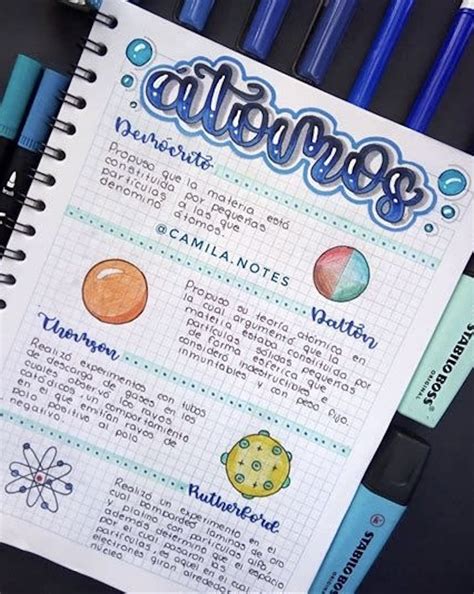 átomos
Demócrito
Propuso que la materia está
constituida por pequeñas
partículas a las que
denominó átomos!
@CAMILA.NOTES
Dalton
Propuso su teoría atómica en
la cual argumentó que la
materia estaba constituida por
partículas sólidas pequeñas
de forma esférica que
consideró indestructibles e
inmuntables y con peso fijo.
Thomson
Realizó experimentos con tubos
de descarga de gases en los
cuales observó los rayos
catódicos un comportamiento
en el que emitían rayos de
polo positivo al polo
negativo.
Rutherford
Realizó un experimento en el
cual bombardeó láminas de oro
y platino con partículas alfa
además determinó que el espacio
por el cual pasaron las
partículas, es aquel en el cual
electrones giran alrededor
núcleo
STABILO BOSS
ORIGINAL
STABILO BOSS
ORIGINAL